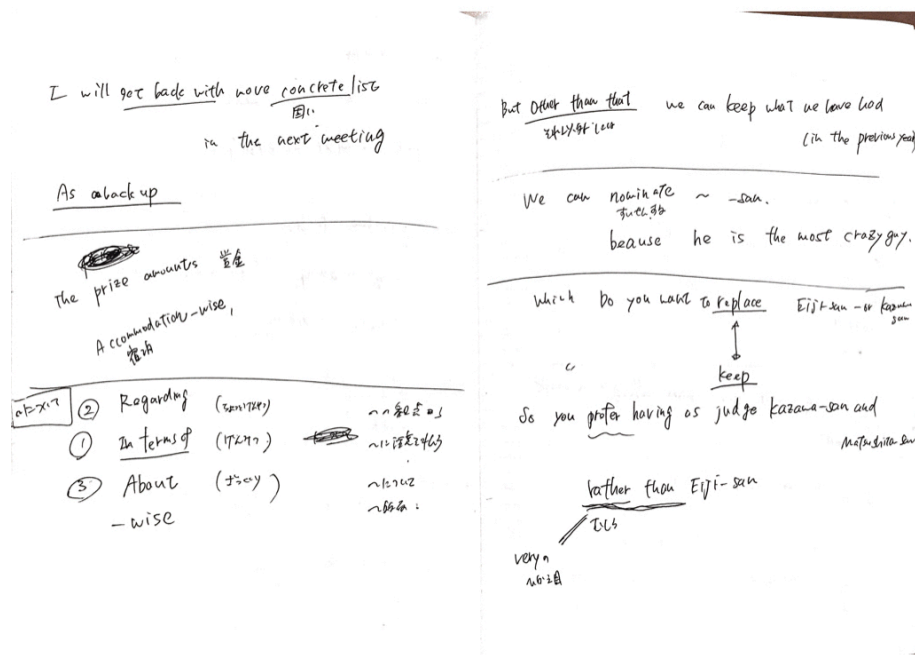 I will get back with more concrete list
固い
in the next meeting
As a back up
The prize amounts 賞金
Accommodation-wise,
宿泊
② Regarding
① In terms of
③ About (ざっくり)
～について
-wise
But Other than that we can keep what we have had
それ以外に
(in the previous year
We can nominate ~ -san.
すいせんする
beause he is the most crazy guy.
Which Do you want to replace Eiji-san - or Kazawa
san
keep
So you prefer having as judge Kazawa-san and
Matsushita san
rather than Eiji-san
むしろ
very